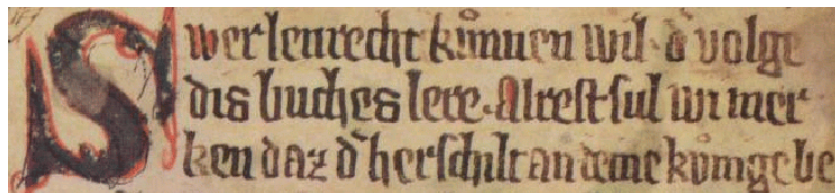 Swer lenrecht kůnnen wil · d̓ volge
dis buches lere. Alrest sul wi mer
ken daz d̓ herschilt an deme kůnige be